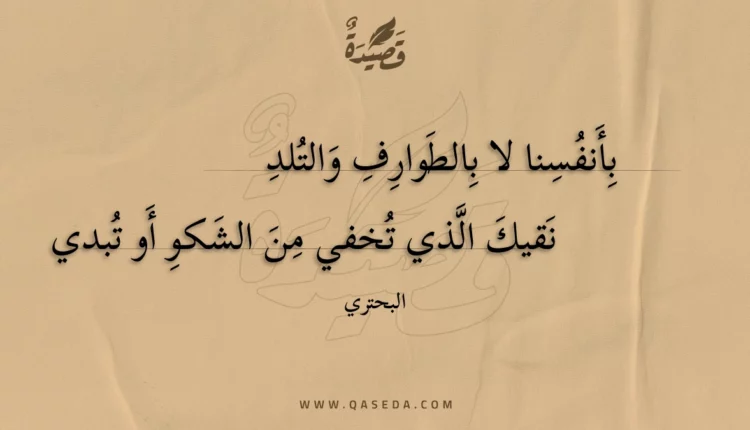 قَصِيدَةٌ
بِأَنفُسِنا لا بِالطَوارِفِ وَالتُلدِ
نَقيكَ الَّذي تُخفي مِنَ الشَكوِ أَو تُبدي
البحتري
WWW.QASEDA.COM